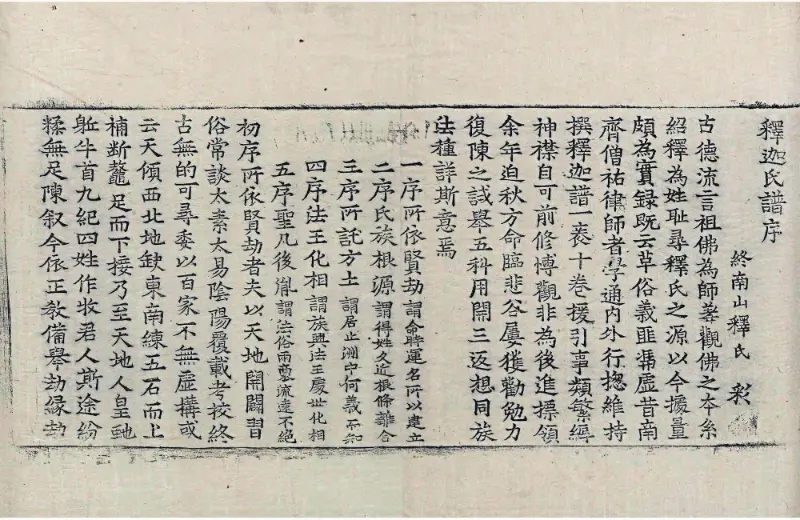 釋迦氏譜序
終南山釋氏 彩
古德流言祖佛為師莫觀佛之本系
紹釋為姓耻尋釋氏之源以今據量
頗為實錄既云革俗義匪憑虛昔南
齊僧祐律師者學通內外行揔維持
撰釋迦譜一袠十卷援引事類繁縟
神襟自可前修博觀非為後進標領
余年迫秋方命臨悲谷屢獲勸勉力
復陳之試舉五科用開三返想同族
法種詳斯意焉
一序所依賢劫謂命時運名所以建立
二序氏族根源謂得姓久近根條離合
三序所託方土謂居止洲中何義不知
四序法王化相謂族興法王慶世化相
五序聖凡後胤謂法俗兩胤流遠不絕
初序所依賢劫者夫以天地開闢習
俗常談太素太易陰陽覆載考校終
古無的可尋委以百家不無虛構或
云天傾西北地缺東南練五石而上
補斷鼇足而下接乃至天地人皇虵
軀牛首九紀四姓作牧君人斯途紛
糅無足陳叙今依正教備舉劫緣劫